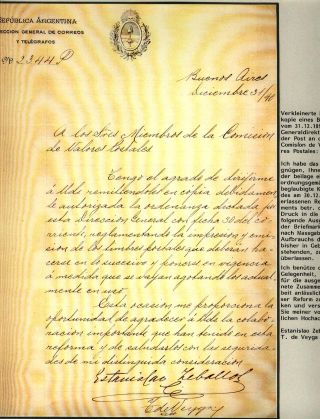 REPÚBLICA ARGENTINA
DIRECCIÓN GENERAL DE CORREOS
Y TELÉGRAFOS
Nº 2344 P
Buenos Aires
Diciembre 31/
A los Sres Miembros de la Comisión
de Valores Postales:
Tengo el agrado de dirijirme
á Uds remitiendoles en copia debidamen
te autorizada la ordenanza dictada por
esta Dirección General con fecha 30 del co
rriente, reglamentando la impresión y emi
sion de los timbres postales que deberán ha
cerse en lo sucesivo y ponerse en vigencia
á medida que se vayan agotando los actual
mente en uso
Esta ocasion me proporciona la
oportunidad de agradecer á Uds la colabo
racion importante que han tenido en esta
reforma y de saludarlos con las segurida
des de mi distinguida consideracion
Estanislao Zeballos
T de Veyga
Verkleinerte
kopie eines B
vom 31.12.18
Generaldirekt
der Post an
Comision de V
res Postales:
Ich habe das
gnügen, Ihnen
der beilage e
ordnungsgemä
beglaubigte K
des am 30.12.
erlassenen R
ments betr.
Druck in die
folgung der
der Briefmar
nach Massgabe
Aufbrauchs d
bisher in Geb
stehenden, zu
übersenden, zu
überlassen.
Ich benütze
Gelegenheit,
für die ausge
nete Zusammen
beit anlässlic
ser Reform
ken und vers
Sie meiner vo
lichen Hochac
Estanislao Zeb
T. de Veyga